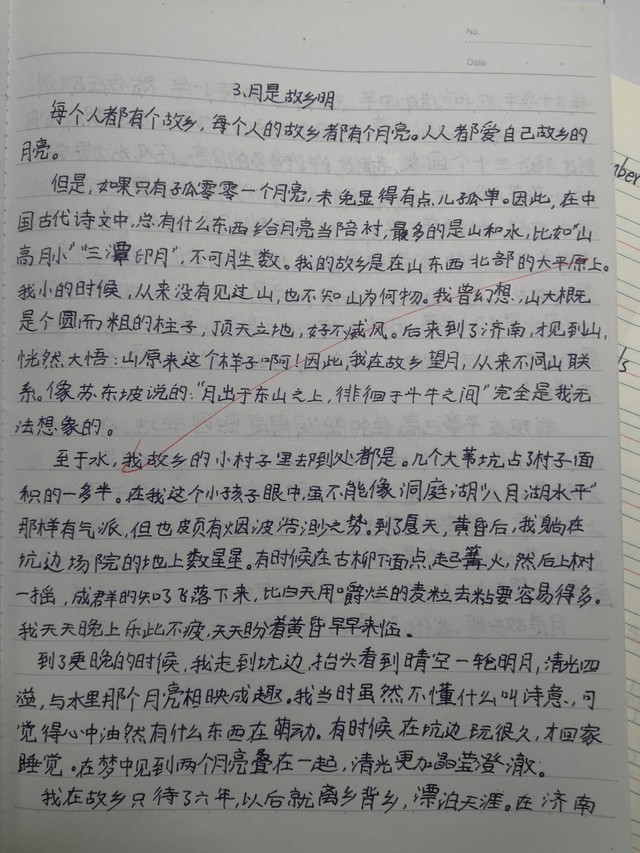 No.
Data
3.月是故乡明
每个人都有个故乡，每个人的故乡都有个月亮。人人都爱自己故乡的
月亮。
但是，如果只有孑瓜零零一个月亮，未免显得有点儿孤单。因此，在中
国古代诗文中，总有什么东西乡给月亮当陪衬，最多的是山和水，比如“山
高月小”“三潭印月”，不可胜数。我的故乡是在山东西北部的大平原上。
我小的时候，从来没有见过山，也不知山为何物。我曾幻想，山大概
是个圆而粗的柱子，顶天立地，好不威风。后来到了济南，才见到山，
恍然大悟：山原来这个样子啊！因此，我在故乡望月，从来不同山联
系。像苏东坡说的：“月出于东山之上，徘徊于斗牛之间”完全是我无
法想象的。
至于水，我故乡的小村子里却到处都是。几个大苇坑占了村子面
积的一多半。在我这个小孩子眼中，虽不能像洞庭湖“八月湖水平”
那样有气派，但也颇有烟波浩渺之势。到了夏天，黄昏后，我躺在
坑边场院的地上数星星。有时候在古柳下面点起篝火，然后上树
一摇，成群的知了飞落下来，比白天用嚼烂的麦粒去粘要容易得多。
我天天晚上乐此不疲，天天盼着黄昏早早来临。
到了更晚的时候，我走到坑边，抬头看到晴空一轮明月，清光四
溢，与水里那个月亮相映成趣。我当时虽然不懂什么叫诗意，可
觉得心中油然有什么东西在萌动。有时候在坑边玩很久，才回家
睡觉。在梦中见到两个月亮叠在一起，清光更加晶莹澄澈。
我在故乡只待了六年，以后就离乡背乡，漂泊天涯。在济南